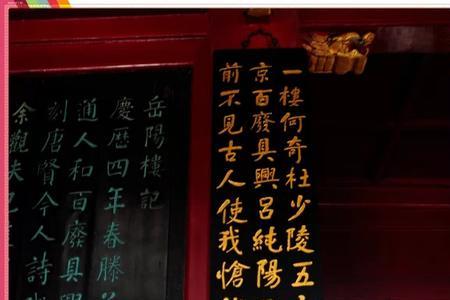 一樓何奇杜少陵五
京百廢具興呂純陽
前不見古人使我愴
岳陽樓記
慶歷四年春滕
通人和百廢具興
刻唐賢今人詩
余觀夫